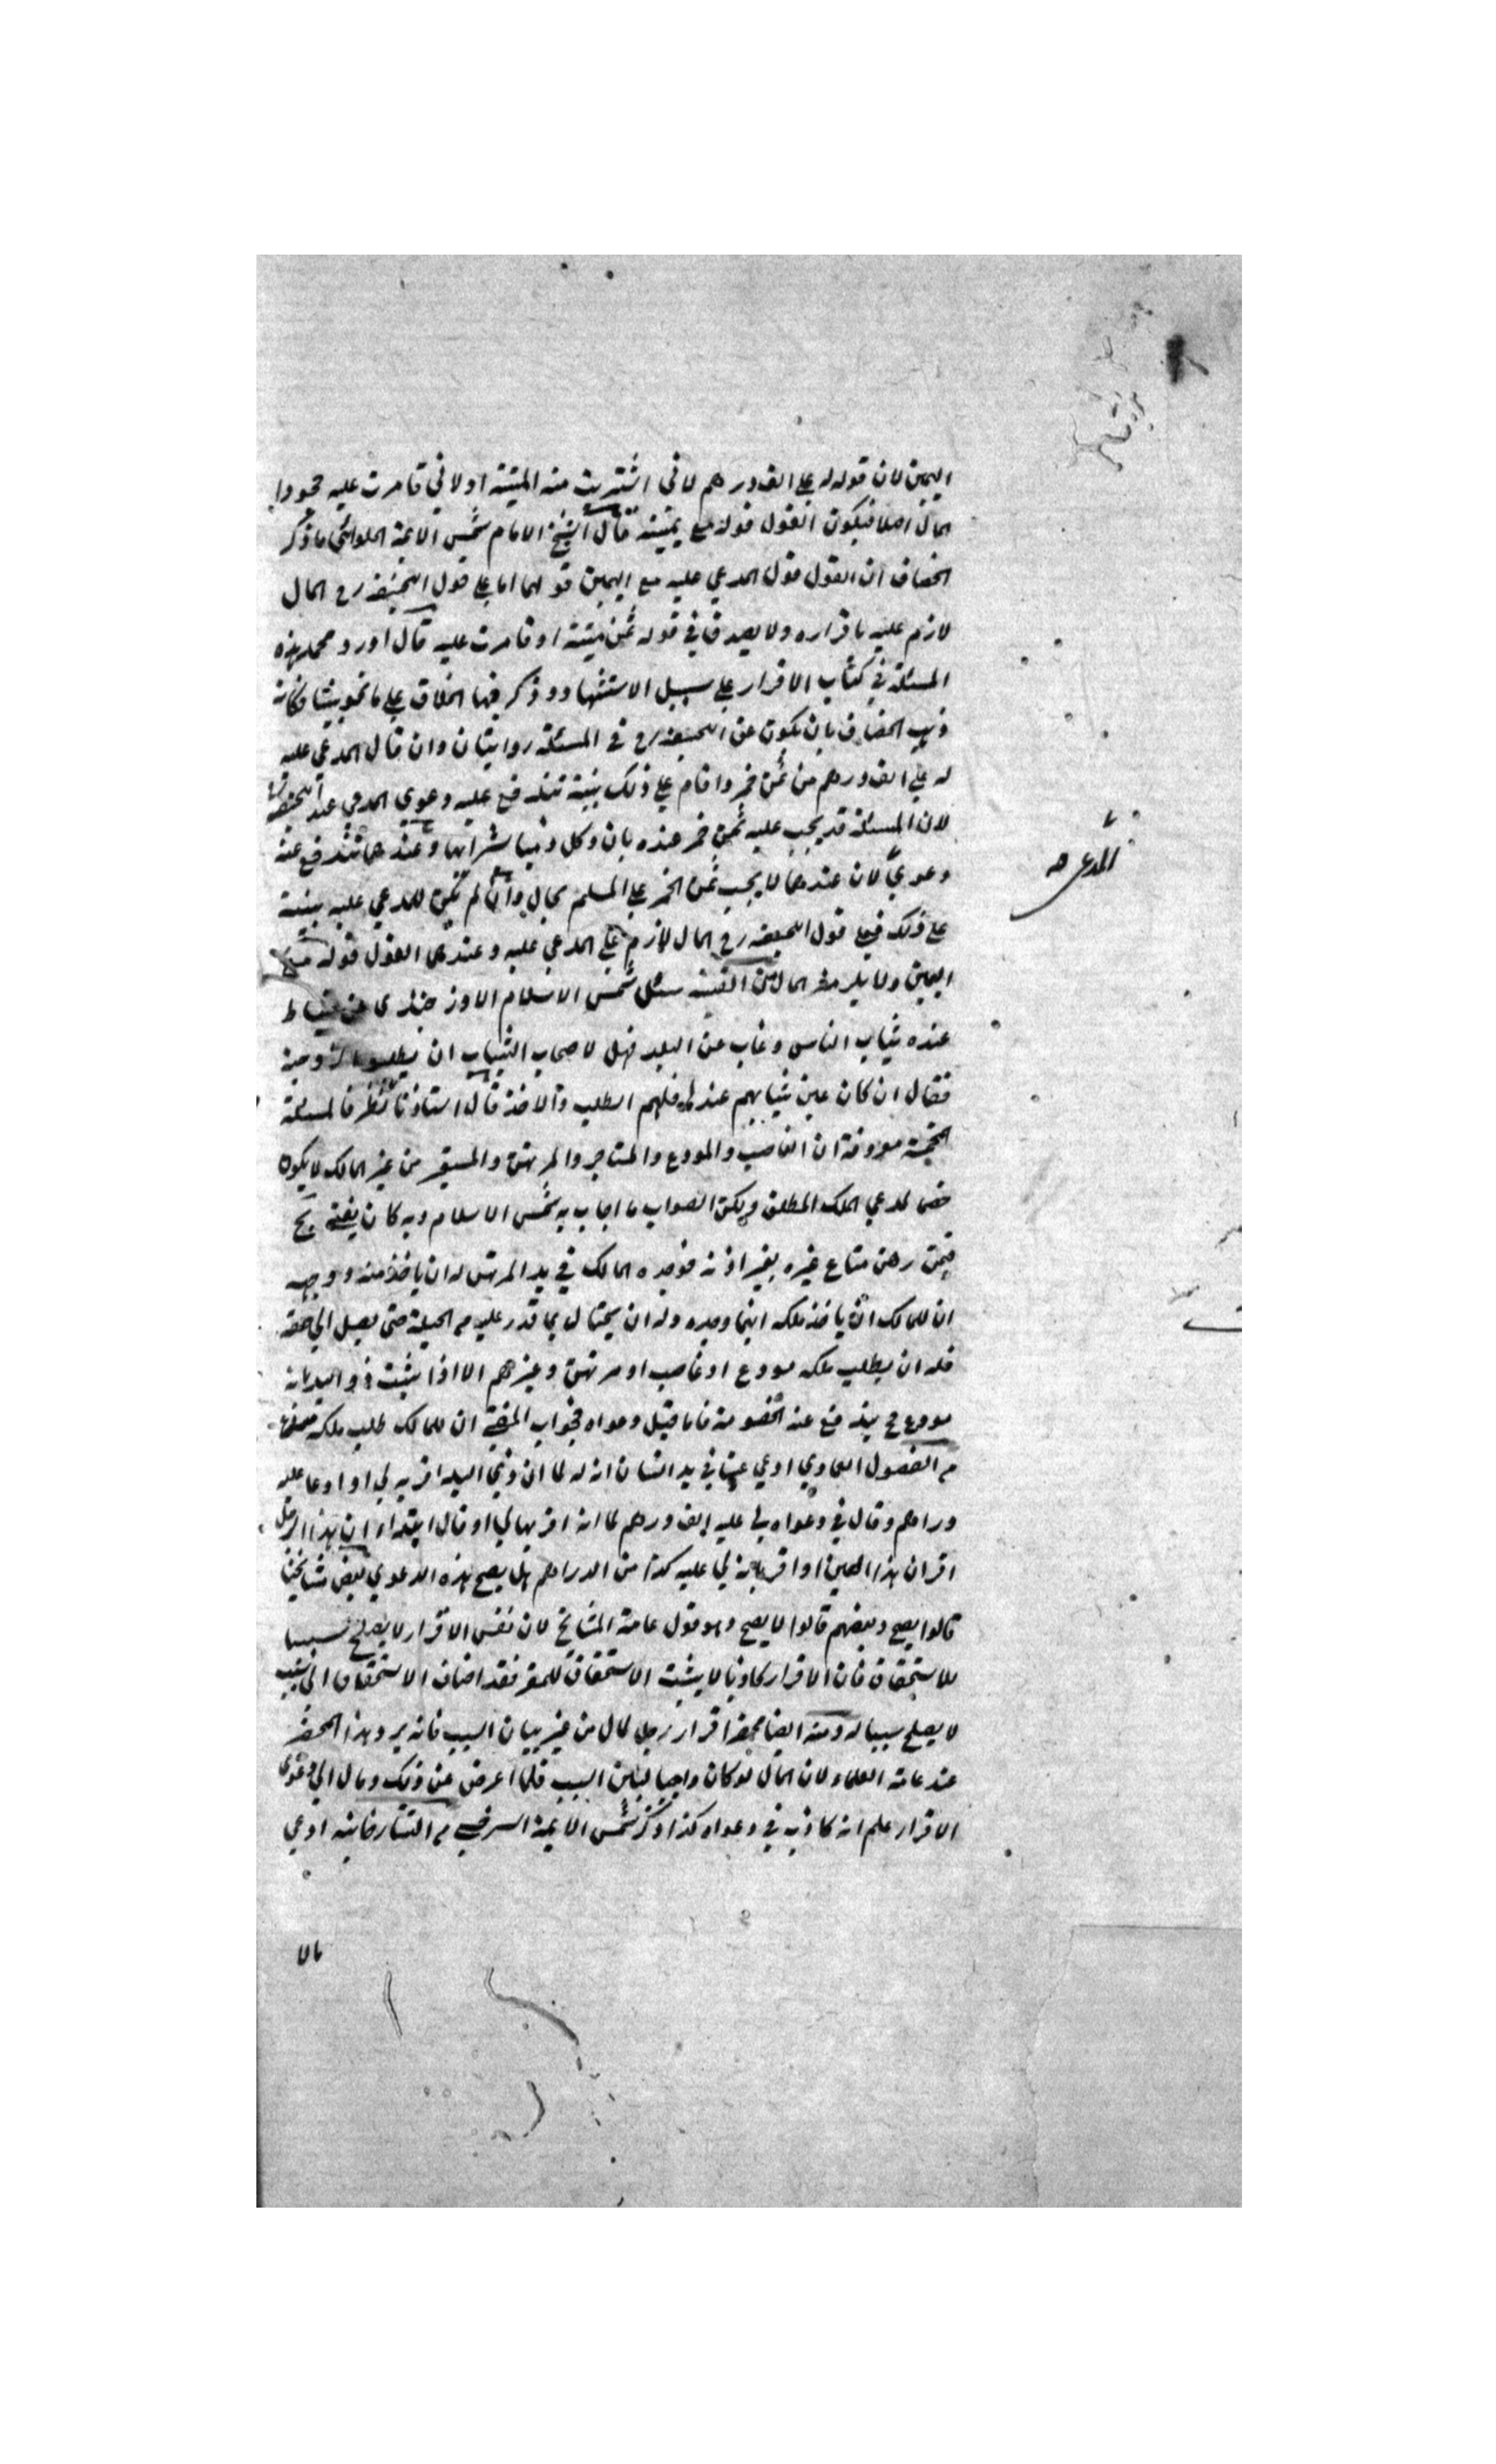 اليمين لان قوله له علي الف درهم لاني اشتريت منه الميتة او لاني قامرت عليه جحودا
المال اصلا فيكون القول قوله مع يمينه قال الشيخ الامام شمس الائمة الحلوائي ما ذكر
الخصاف ان القول قول المدعي عليه مع اليمين قولهما اما علي قول ابيحنيفه رح المال
لازم عليه باقراره ولا يصدق في قوله ثمن ميتة او قامرت عليه قال اورد محمد هذه
المسئلة في كتاب الاقرار علي سبيل الاستشهاد وذكر فيها الخلاف علي ما نحو بينا فكانه
ذهب الخصاف بان يكون عن ابيحنيفه رح في المسئلة روايتان وان قال المدعي عليه
له علي الف درهم من ثمن خمر واقام علي ذلك بينة تندفع عليه دعوي المدعي عند ابيحنيفه
لان المسئلة قد يجب عليه ثمن خمر عنده بان وكل ذميا بشرائها وعندهما تندفع عنه
دعوي لان عندهما لا يجب ثمن الخمر علي المسلم بحال وان لم تكن للمدعي عليه بينة
علي ذلك فعلي قول ابيحنيفه رح المال لازم علي المدعي عليه وعندهما القول قوله مع
اليمين ولا يلزمه المال من القنية سئل شمس الاسلام الاوزجندي عن خياط
عنده ثياب الناس وغاب عن البلد فهل لاصحاب الثياب ان يطلبوا زوجته
فقال ان كان عين ثيابهم عندها فلهم الطلب والاخذ قال استاذنا نظر فالمسئلة
المخمسة معروفة ان الغاصب والمودع والمستاجر والمرتهن والمستعير من غير المالك لا يكون
خصما لمدعي الملك المطلق ولكن الصواب ما اجاب به شمس الاسلام وبه كان يفتي بح
فيمن رهن متاع غيره بغير اذنه فوجده المالك في يد المرتهن له ان ياخذ منه ووجهه
ان للمالك ان ياخذ ملكه اينما وجده وله ان يحتال بما قدر عليه من الحيلة حتي يصل الي حقه
فله ان يطلب ملكه مودع او غاصب او مرتهن وغيرهم الا اذا يثبت ذو اليد بانه
مودع مح يندفع عنه الخصومة فاما قبل دعواه فجواب المفتي ان للمالك طلب ملكه
من الفصول العمادي ادعي عينا في يد انسان انه له لما ان ذي اليد اقر به لي او ادعا عليه
دراهم وقال في دعواه لي عليه الف درهم لما انه اقر بها لي او قال ابتداء ان هذا الرجل
اقر ان هذا العين او اقر بانه لي عليه كذا من الدراهم هل يصح هذه الدعوي بعض مشايخنا
قالوا يصح وبعضهم قالوا لا يصح وهو قول عامة المشايخ لان نفس الاقرار لا يصلح سببا
للاستحقاق فان الاقرار كاذبا لا يثبت الاستحقاق للمقر فقد اضاف الاستحقاق الي سبب
لا يصلح سببا له ومنه ايضا محضر اقرار رجل لمال من غير بيان السبب فانه يرد هذا المحضر
عند عامة العلماء لان المال لو كان واجبا لبين السبب فلما اعرض عن ذلك ومال الي دعوي
الاقرار علم انه كاذب في دعواه كذا ذكر شمس الائمة السرخسي من التتارخانية ادعي
مالا
المدعي صح